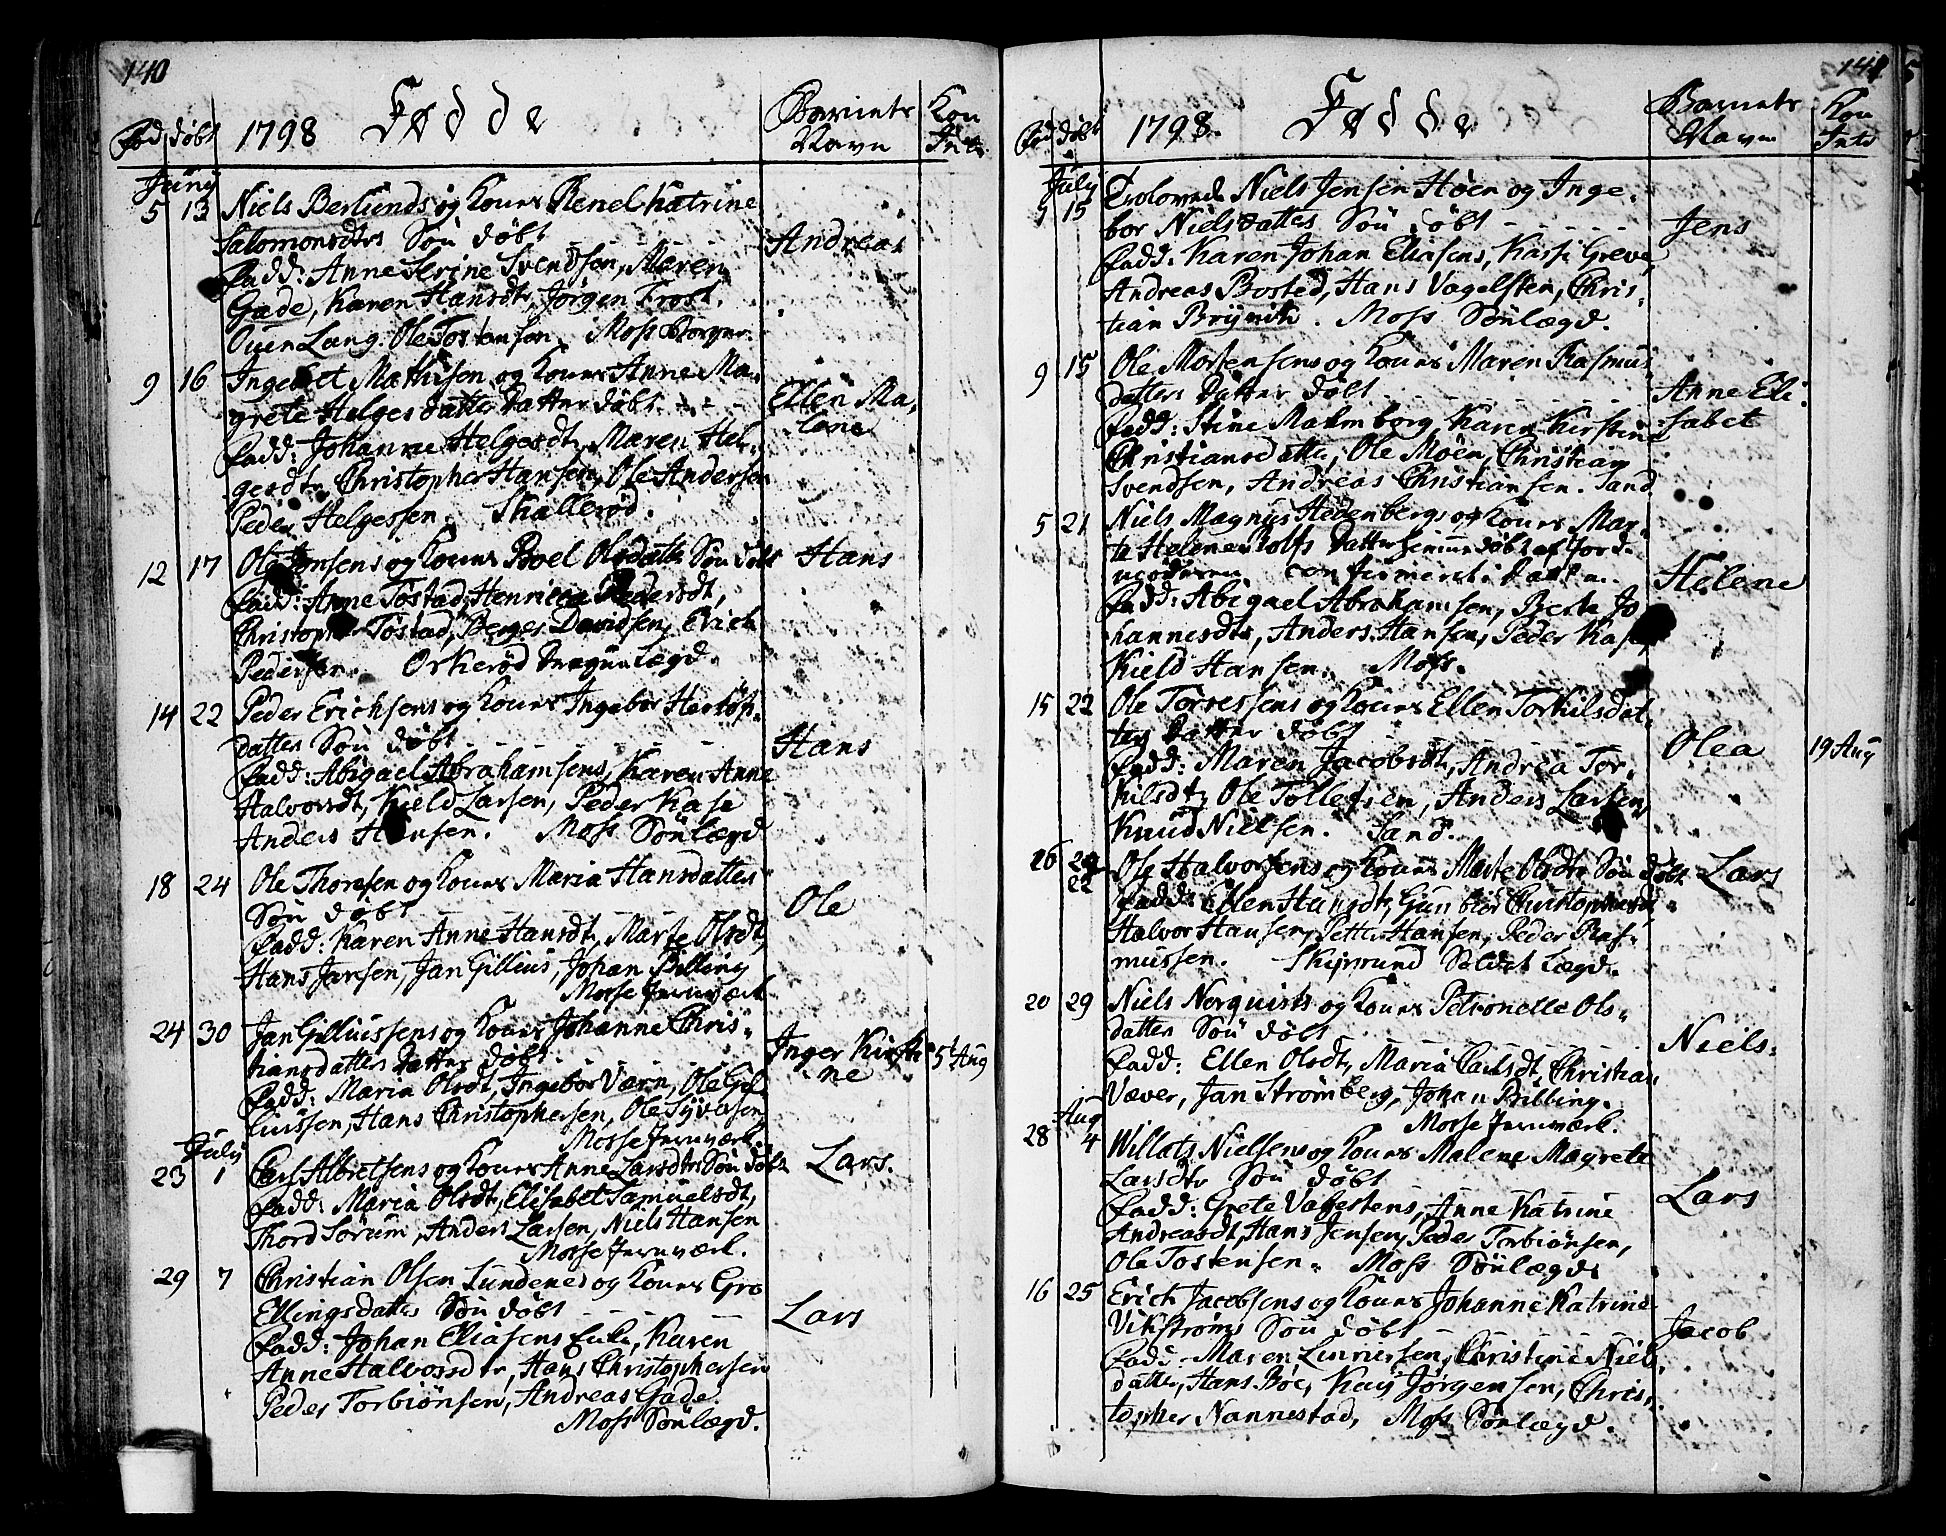 140
Fød døbt 1798 Fødde Barnets Navn Kon Int.
Juny
5 13 Niels Berlunds og Kones Renel Katrine
Salomonsdtrs Søn døbt Andreas
Fadd: Anne Serine Svendsen, Maren
Gade, Karen Hansdtr, Jørgen Frost.
Ouen Lang. Ole Tostensen. Moss Borger.
9 16 Ingebret Mathisen og Kones Anne Ma-
grete Helgesdatters Datter døbt Ellen Ma-
lene
Fadd: Johanne Helgesdtr, Maren Hel-
gesdtr, Christopher Hansen, Ole Andersen
Peder Helgessen. Skallerød.
12 17 Ole Jonsens og Kones Boel Olsdatters Søn døbt Hans
Fadd: Anne Tostad, Henricca Pedersdt,
Christopher Tostad, Berger Davidsen, Erich
Pedersen. Orkerød Dragun Lægd.
14 22 Peder Erichsens og Kones Ingebor
datters Søn døbt Hans
Fadd: Abigael Abrahamsens, Karen Anne
Halvorsdt, Kield Larsen, Peder Kase
Anders Hansen. Moss Sønlægd
18 24 Ole Thoresen og Kones Maria Hansdatters
Søn døbt Ole
Fadd: Karen Anne Hansdt, Marte Olsdt,
Hans Jansen, Jan Gillius, Johan Billing
Mosse Jernværk
24 30 Jan Gilliussens og Kones Johanne Chris-
tiansdatters Datter døbt Inger Kirsti-
ne 5 Aug
Fadd: Maria Olsdt, Ingebor Værn, Ole Gil-
liussen, Hans Christophersen, Ole Syversen
Mosse Jernværk.
July
23 1 Carl Albretsens og Kones Anne Larsdtrs Søn døbt Lars.
Fadd: Maria Olsdt, Elisabet Samuelsdt,
Thord Sørum, Anders Larsen, Niels Hansen
Mosse Jernværk.
29 7 Christian Olsen Lundenes og Kones Gro
Ellingsdatters Søn døbt Lars
Fadd: Johan Eliasens Enke, Karen
Anne Halvorsdtr, Hans Christophersen
Peder Torbiønsen, Andreas Gade.
Moss Sønlægd.
141
Fød døbt 1798. Fødde Barnets Navn Kon Ints
July
15 Trolovede Niels Jensen Høen og Inge-
bor Nielsdatters Søn døbt Jens
Fadd: Karen Johan Eliasens, Karse Greve,
Andreas Bosted, Hans Vagelsten, Chris-
tian Brynih. Moss Sønlægd.
9 15 Ole Mortensens og Kones Maren Rasmus-
datters Datter døbt Anne Eli-
sabet
Fadd: Stine Malmborg, Karen Kirstine
Christiansdatter, Ole Moen, Christian
Svendsen, Andreas Christiansen. Sand
5 21 Niels Magnus Hedenbergs og Kones Mar-
te Helene Wolfs Datter hiemmedøbt af Jord-
moderen confirmert i Daaben. Helene
Fadd: Abigael Abrahamsen, Berte Jo
hannesdtr, Anders Hansen, Peder Kase,
Kield Hansen. Moss.
15 22 Ole Torressens og Kones Ellen Torkilsdat-
ters Datter døbt Olea 19 Aug
Fadd: Maren Jacobsdt, Andrea Tor-
kilsdtr, Ole Tollefsen, Anders Larsen,
Knud Nielsen. Sand.
16 22 Ole Halvorsens og Kones Marte Olsdtrs Søn døbt Lars
Fadd: Ellen Hansdt, Gunbior Christophersdt,
Halvor Hansen, Petter Hansen, Peder Ras-
mussen. Skipsrund Soldat Lægd.
20 29 Niels Norquists og Kones Petronelle Ols-
datters Søn døbt Niels.
Fadd: Ellen Olsdt, Maria Carlsdt, Christian
Væver, Jan Strømberg, Johan Billing.
Mosse Jernværk.
Aug
28 4 Willats Nielsens og Kones Malene Magrete
Larsdtr Søn døbt Lars
Fadd: Grete Vagestens, Anne Katrine
Andreasdt, Hans Jensen, Peder Torbiønsen,
Ole Tostensen. Moss Sønlægd
16 25 Erich Jacobsens og Kones Johanne Katrine
Vikstrøms Søn døbt Jacob
Fadd: Maren Linnersen, Christine Niels-
datter, Hans Boe, Kay Jørgensen, Chris-
topher Nannestad, Moss Sønlægd.